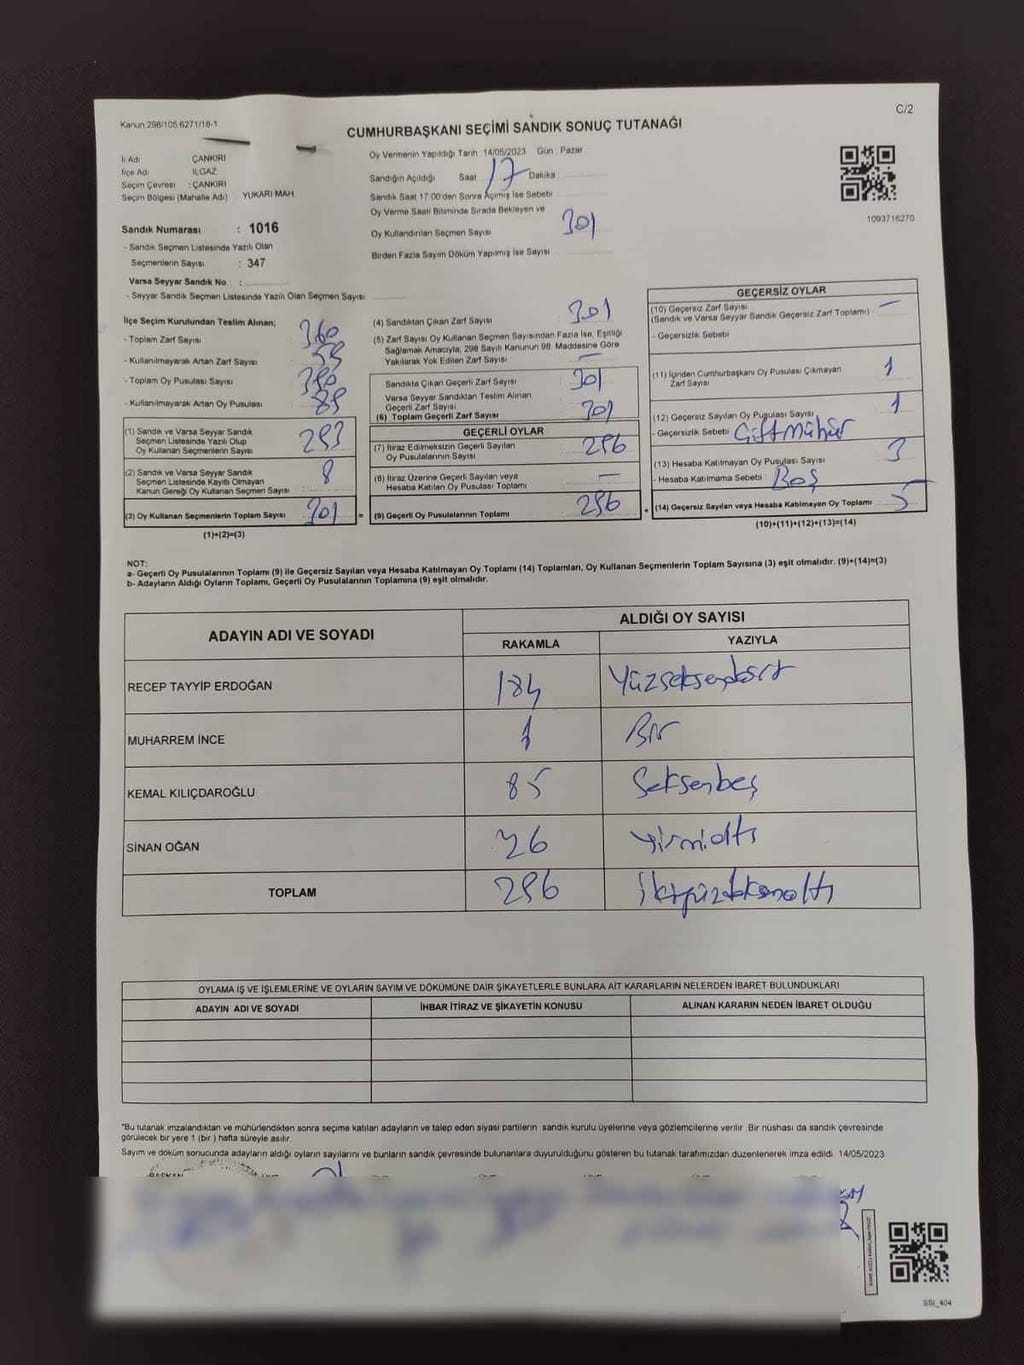 C/2
Kanun 298/105.6271/16-1
CUMHURBAŞKANI SEÇİMİ SANDIK SONUÇ TUTANAĞI
İl Adı ÇANKIRI
İlçe Adı ILGAZ
Seçim Çevresi : ÇANKIRI
Seçim Bölgesi (Mahalle Adı) YUKARI MAH.
Oy Vermenin Yapıldığı Tarih 14/05/2023 Gün : Pazar
Sandığın Açıldığı Saat 17 Dakika
Sandık Saat 17.00'den Sonra Açılmış İse Sebebi
Oy Verme Saati Bitiminde Sırada Bekleyen ve
Oy Kullandırılan Seçmen Sayısı 301
Birden Fazla Sayım Döküm Yapılmış İse Sayısı
1093716270
Sandık Numarası : 1016
- Sandık Seçmen Listesinde Yazılı Olan
Seçmenlerin Sayısı : 347
Varsa Seyyar Sandık No :
- Seyyar Sandık Seçmen Listesinde Yazılı Olan Seçmen Sayısı
İlçe Seçim Kurulundan Teslim Alınan;
- Toplam Zarf Sayısı 360
- Kullanılmayarak Artan Zarf Sayısı 59
- Toplam Oy Pusulası Sayısı 390
- Kullanılmayarak Artan Oy Pusulası 89
(1) Sandık ve Varsa Seyyar Sandık
Seçmen Listesinde Yazılı Olup
Oy Kullanan Seçmenlerin Sayısı 293
(2) Sandık ve Varsa Seyyar Sandık
Seçmen Listesinde Kayıtlı Olmayan
Kanun Gereği Oy Kullanan Seçmen Sayısı 8
(3) Oy Kullanan Seçmenlerin Toplam Sayısı 301 =
(1)+(2)=(3)
(4) Sandıktan Çıkan Zarf Sayısı 301
(5) Zarf Sayısı Oy Kullanan Seçmen Sayısından Fazla İse, Eşitliği
Sağlamak Amacıyla; 298 Sayılı Kanunun 98. Maddesine Göre
Yakılarak Yok Edilen Zarf Sayısı —
Sandıkta Çıkan Geçerli Zarf Sayısı 301
Varsa Seyyar Sandıktan Teslim Alınan
Geçerli Zarf Sayısı
(6) Toplam Geçerli Zarf Sayısı 301
GEÇERLİ OYLAR
(7) İtiraz Edilmeksizin Geçerli Sayılan
Oy Pusulalarının Sayısı 296
(8) İtiraz Üzerine Geçerli Sayılan veya
Hesaba Katılan Oy Pusulası Toplamı —
(9) Geçerli Oy Pusulalarının Toplamı 296 +
GEÇERSİZ OYLAR
(10) Geçersiz Zarf Sayısı —
(Sandık ve Varsa Seyyar Sandık Geçersiz Zarf Toplamı)
- Geçersizlik Sebebi
(11) İçinden Cumhurbaşkanı Oy Pusulası Çıkmayan
Zarf Sayısı 1
(12) Geçersiz Sayılan Oy Pusulası Sayısı 1
- Geçersizlik Sebebi Çift mühür
(13) Hesaba Katılmayan Oy Pusulası Sayısı 3
- Hesaba Katılmama Sebebi Boş
(14) Geçersiz Sayılan veya Hesaba Katılmayan Oy Toplamı 5
(10)+(11)+(12)+(13)=(14)
NOT:
a- Geçerli Oy Pusulalarının Toplamı (9) ile Geçersiz Sayılan veya Hesaba Katılmayan Oy Toplamı (14) Toplamları, Oy Kullanan Seçmenlerin Toplam Sayısına (3) eşit olmalıdır. (9)+(14)=(3)
b- Adayların Aldığı Oyların Toplamı, Geçerli Oy Pusulalarının Toplamına (9) eşit olmalıdır.
ADAYIN ADI VE SOYADI ALDIĞI OY SAYISI
RAKAMLA YAZIYLA
RECEP TAYYİP ERDOĞAN 184 Yüzseksendört
MUHARREM İNCE 1 Bir
KEMAL KILIÇDAROĞLU 85 Seksenbeş
SİNAN OĞAN 26 Yirmialtı
TOPLAM 296 İkiyüzdoksanaltı
OYLAMA İŞ VE İŞLEMLERİNE VE OYLARIN SAYIM VE DÖKÜMÜNE DAİR ŞİKAYETLERLE BUNLARA AİT KARARLARIN NELERDEN İBARET BULUNDUKLARI
ADAYIN ADI VE SOYADI İHBAR İTİRAZ VE ŞİKAYETİN KONUSU ALINAN KARARIN NEDEN İBARET OLDUĞU
*Bu tutanak imzalandıktan ve mühürlendikten sonra seçime katılan adayların ve talep eden siyasi partilerin sandık kurulu üyelerine veya gözlemcilerine verilir. Bir nüshası da sandık çevresinde
görülecek bir yere 1 (bir) hafta süreyle asılır.
Sayım ve döküm sonucunda adayların aldığı oyların sayılarını ve bunların sandık çevresinde bulunanlara duyurulduğunu gösteren bu tutanak tarafımızdan düzenlenerek imza edildi. 14/05/2023
BAŞKAN
SSI_404